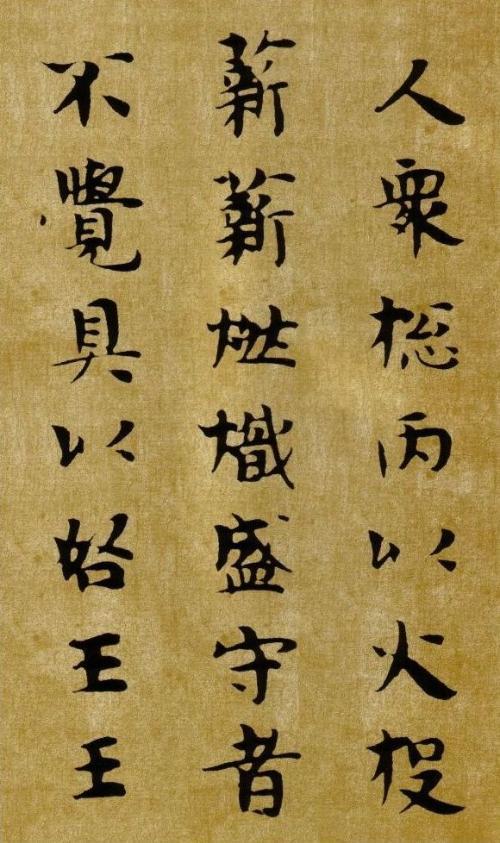 人衆揔丙以火投
薪薪燃熾盛守者
不覺具以始王王